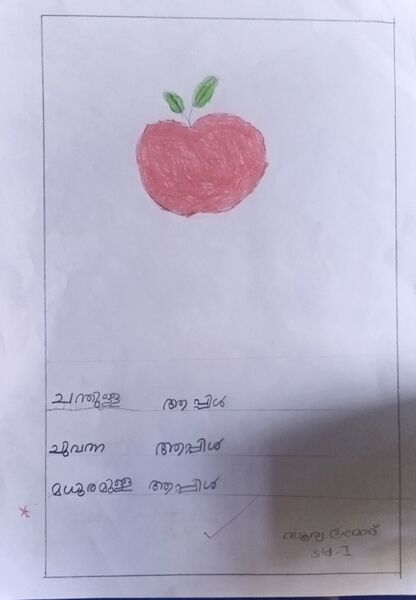 ചന്തുള്ള ആപ്പിൾ
ചുവന്ന ആപ്പിൾ
മധുരമുള്ള ആപ്പിൾ
സൂര്യ
std-I